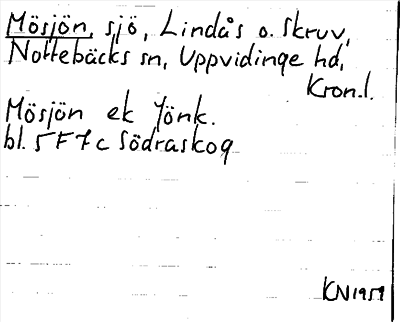 Mösjön, sjö, Lindås o. Skruv,
Nottebäcks sn, Uppvidinge hd,
Kron.l.
Mösjön ek Jönk.
bl. 5 F 7 c Södraskog
KN 1959